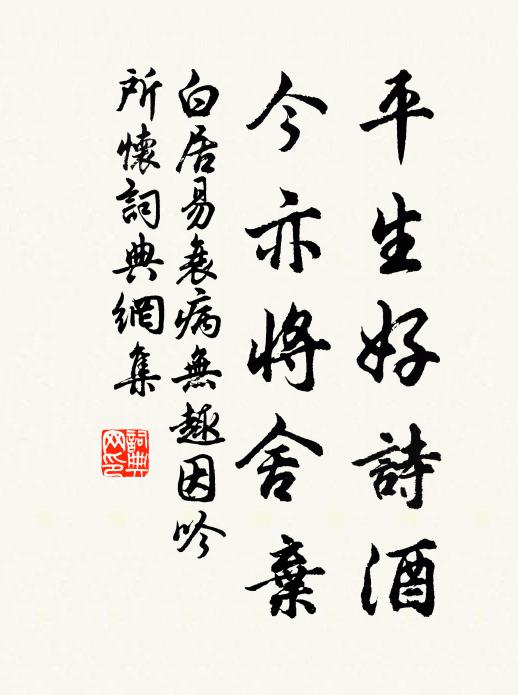 平生好詩酒
今亦將舍棄
白居易衰病無趣因吟
所懷詞典網集
詞典
网印